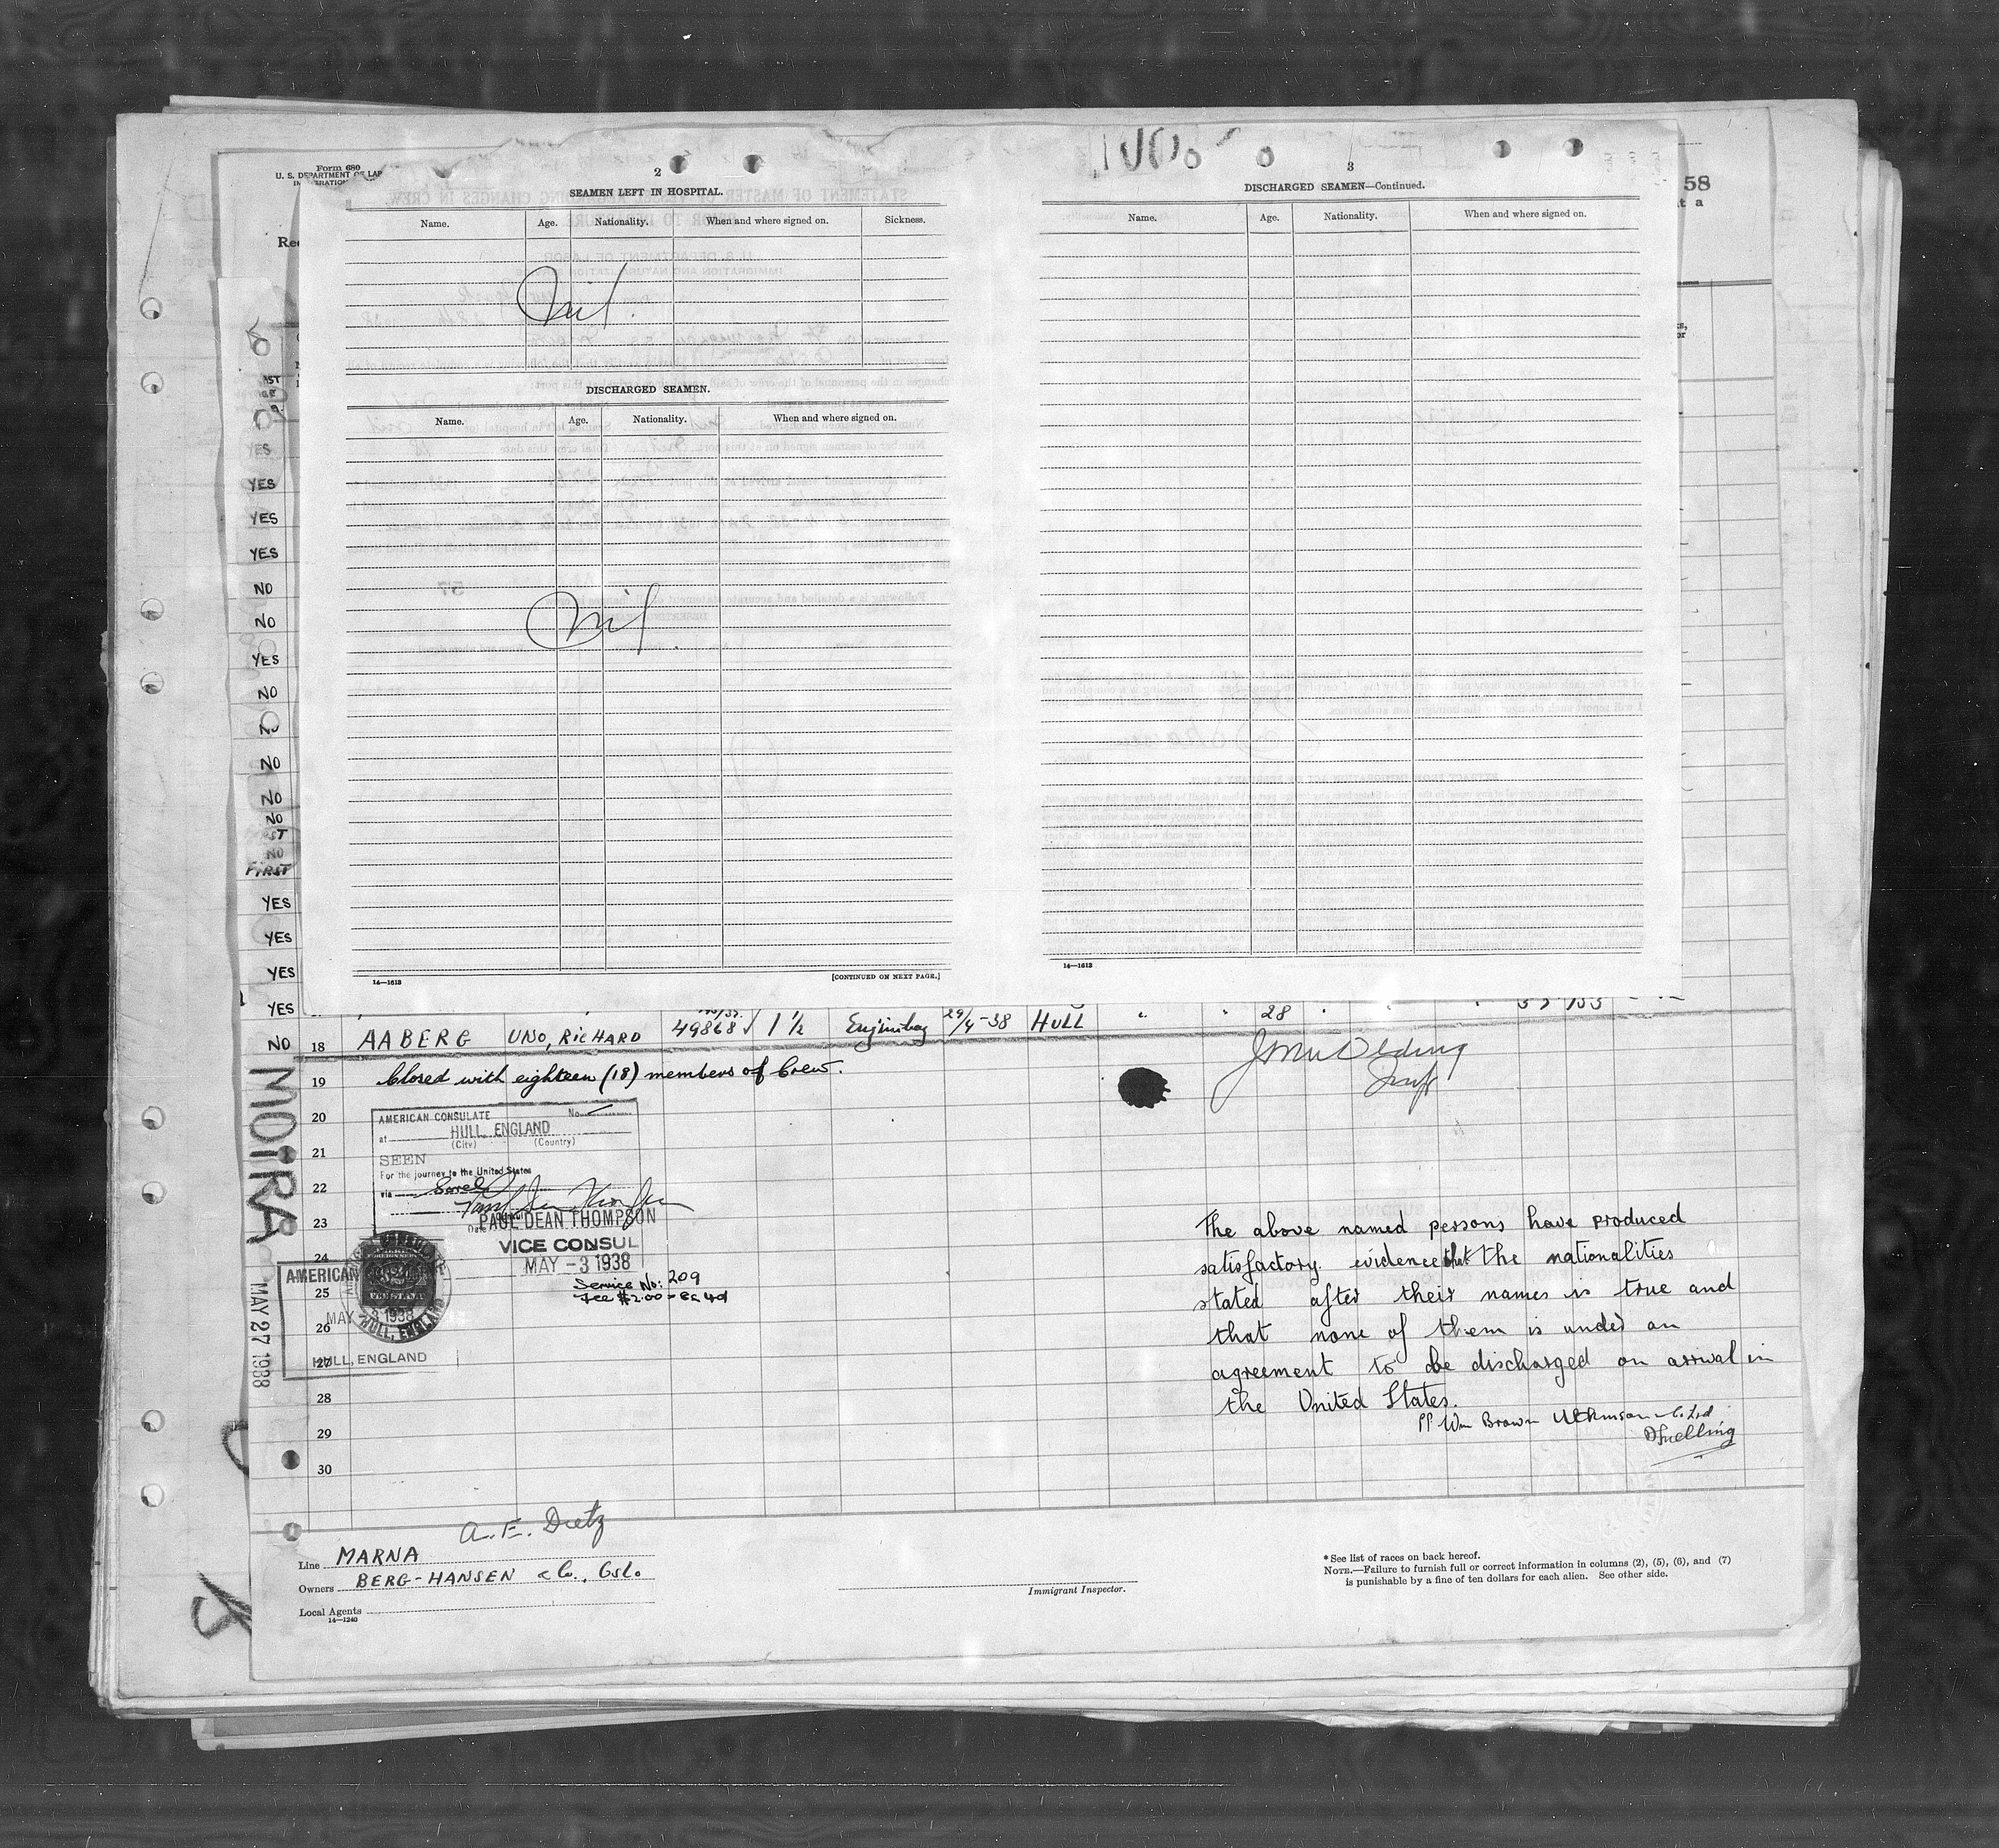 Form 680
U. S. DEPARTMENT OF LAB
2
SEAMEN LEFT IN HOSPITAL.
Name. Age. Nationality. When and where signed on. Sickness.
Nil.
DISCHARGED SEAMEN.
Name. Age. Nationality. When and where signed on.
Nil.
14—1613
[CONTINUED ON NEXT PAGE.]
3
DISCHARGED SEAMEN—Continued.
Name. Age. Nationality. When and where signed on.
14—1613
58
YES
YES
YES
YES
NO
NO
YES
NO
NO
NO
NO
NO
NO
FIRST
YES
YES
YES
YES
NO 18 AABERG UNO, RICHARD 49868 1 1/2 29/4-38 HULL " " 28
19 Closed with eighteen (18) members of Crew.
20
21
22
23
24
25
26
27
28
29
30
AMERICAN CONSULATE No.
at HULL, ENGLAND
(City) (Country)
SEEN
For the journey to the United States
via
PAUL DEAN THOMPSON
VICE CONSUL
MAY -3 1938
Service No: 209
Fee $2.00 =
AMERICAN
MAY 3 1938
HULL, ENGLAND
HULL, ENGLAND
MOIRA
MAY 27 1938
The above named persons have produced
satisfactory evidence that the nationalities
stated after their names is true and
that none of them is under an
agreement to be discharged on arrival in
the United States.
pp Wm Brown Atkinson & Co. Ltd
Snelling
A. E. Dietz
Line MARNA
Owners BERG-HANSEN & Co., Oslo
Local Agents
14—1240
Immigrant Inspector.
* See list of races on back hereof.
NOTE.—Failure to furnish full or correct information in columns (2), (5), (6), and (7)
is punishable by a fine of ten dollars for each alien. See other side.